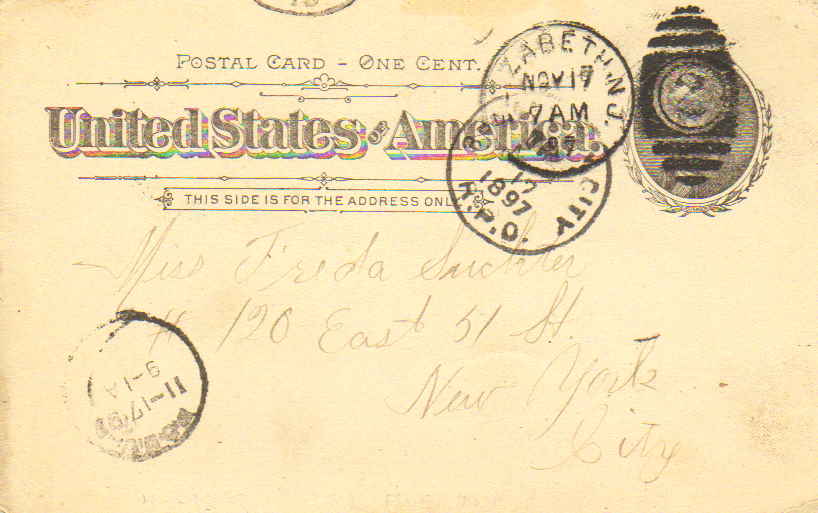 POSTAL CARD - ONE CENT.
United States of America.
THIS SIDE IS FOR THE ADDRESS ONLY
ZABETH, N.J.
NOV 17
7 AM
97
17
1897
R.P.O.
CITY
Miss Freda
# 120 East 51 St.
New York
City
11-17 97
9-1A